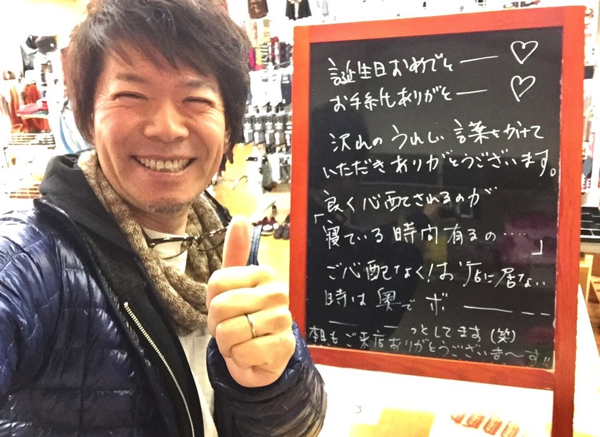 誕生日おめでとー♡
お手紙ありがとー♡
沢山のうれしい言葉をかけて
いただきありがとうございます。
良く心配されるのが
「寝ている時間有るの‥‥」
ご心配なく!お店に居ない
時は奥でボーーーー
ーーーーっとしてます(笑)
本日もご来店ありがとうございま〜す!!